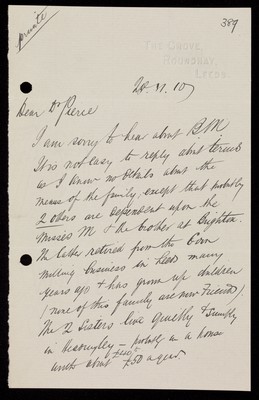 private
389
THE GROVE,
ROUNDHAY,
LEEDS
28. XI. 07
Dear Dr Pierce
I am sorry to hear about B M
It is not easy to reply about terms
as I know no details about the
means of the family except that probably
2 others are dependent upon the
Misses M & the brother at Brighton.
The latter retired from the Corn
milling business in Leeds many
years ago & has grown up children
(none of this family are now Friends)
The 2 Sisters live quietly & simply
in — probably in a house
worth about £40 or £50 a year